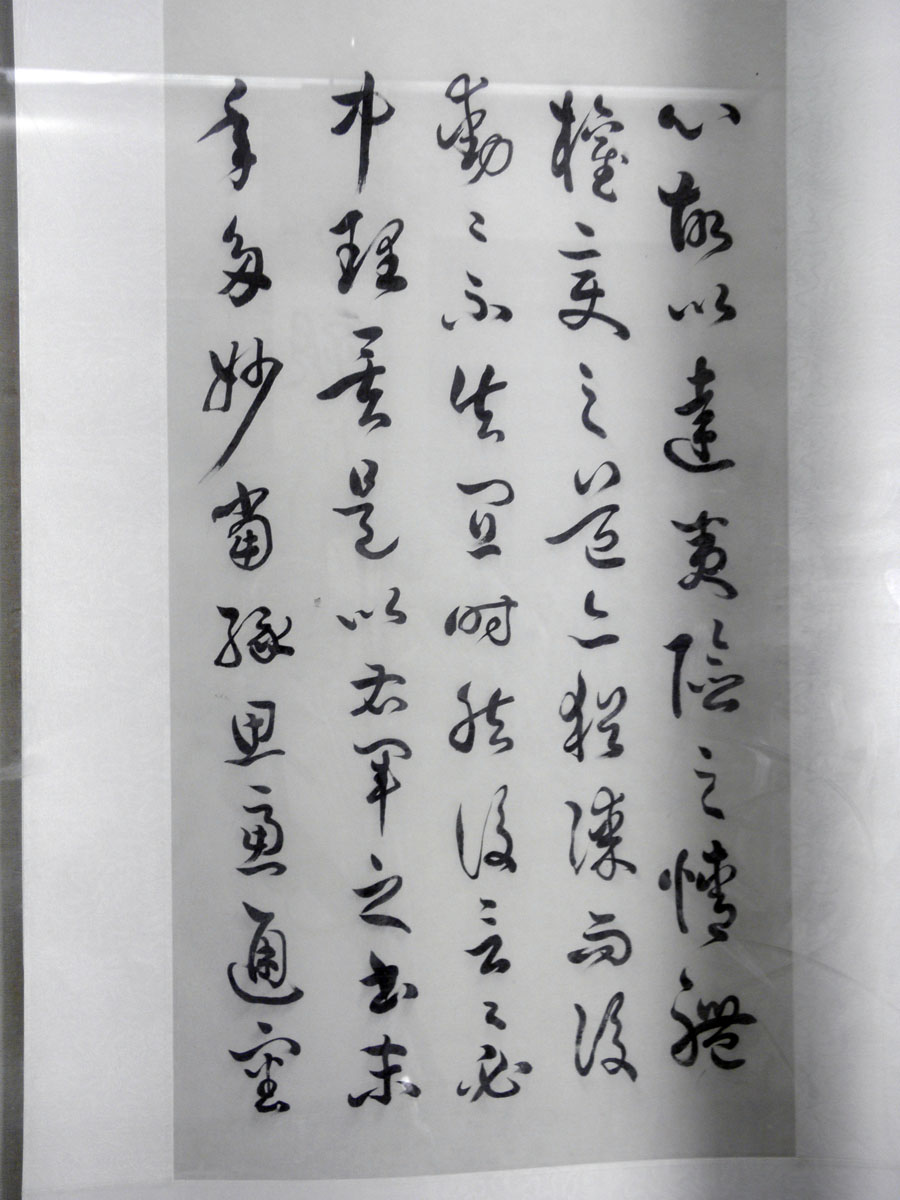 心故以達夷險之情體
權變之道亦猶謀而後
動〻不失宜時然後言〻必
中理矣是以右軍之書末
年多妙當緣思慮通審